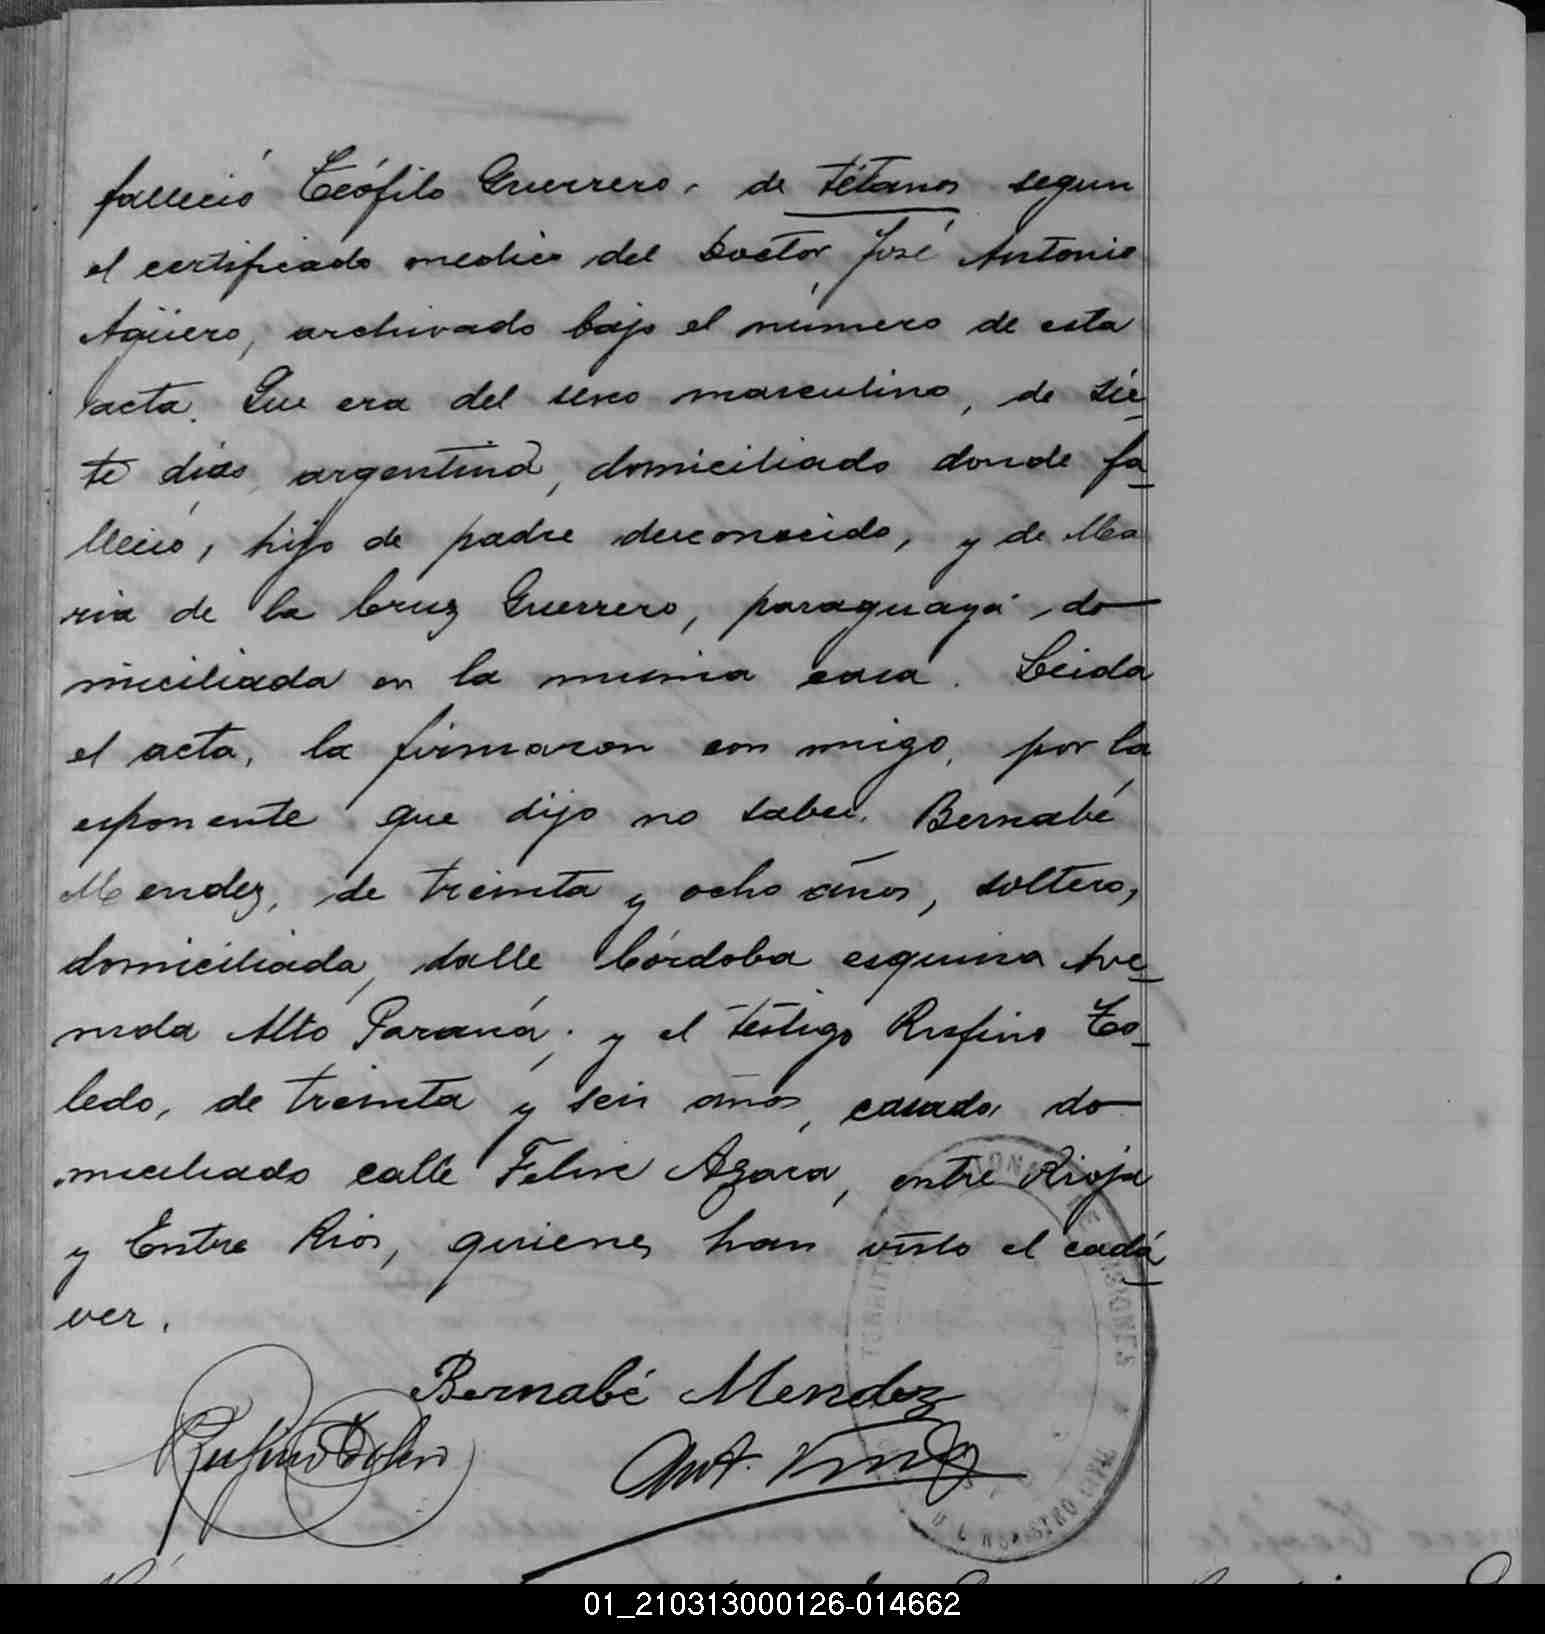 falleció Teófilo Guerrero, de tétanos segun
el certificado medico del Doctor José Antonio
Agüero, archivado bajo el número de esta
acta. Que era del sexo masculino, de sie-
te dias, argentino, domiciliado donde fa-
lleció, hijo de padre desconocido, y de Ma
ria de la Cruz Guerrero, paraguaya do-
miciliada en la misma casa. Leida
el acta, la firmaron con migo, por la
esponente que dijo no saber, Bernabé
Mendez, de treinta y ocho años, soltero,
domiciliada, calle Córdoba esquina Ave-
nida Alto Paraná; y el testigo Rufino To-
ledo, de treinta y seis años, casado, do-
miciliado calle Felix Azara, entre Rioja
y Entre Rios, quienes han visto el cadá-
ver.
Bernabé Mendez
Rufino Toledo
Ant.
TERRITORIO NACIONAL DE MISIONES
REGISTRO CIVIL
01_210313000126-014662